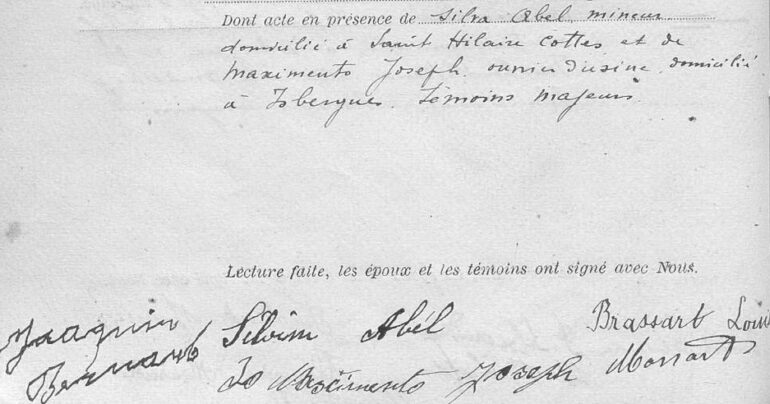 Dont acte en présence de Silva Abel, mineur
domicilié à Saint Hilaire Cottes et de
Maximento Joseph, ouvrier d'usine, domicilié
à Isbergues. Témoins majeurs.
Lecture faite, les époux et les témoins ont signé avec Nous.
Joaquin Silvim Abél Brassart Louis
Bernard Do Nascimento Joseph